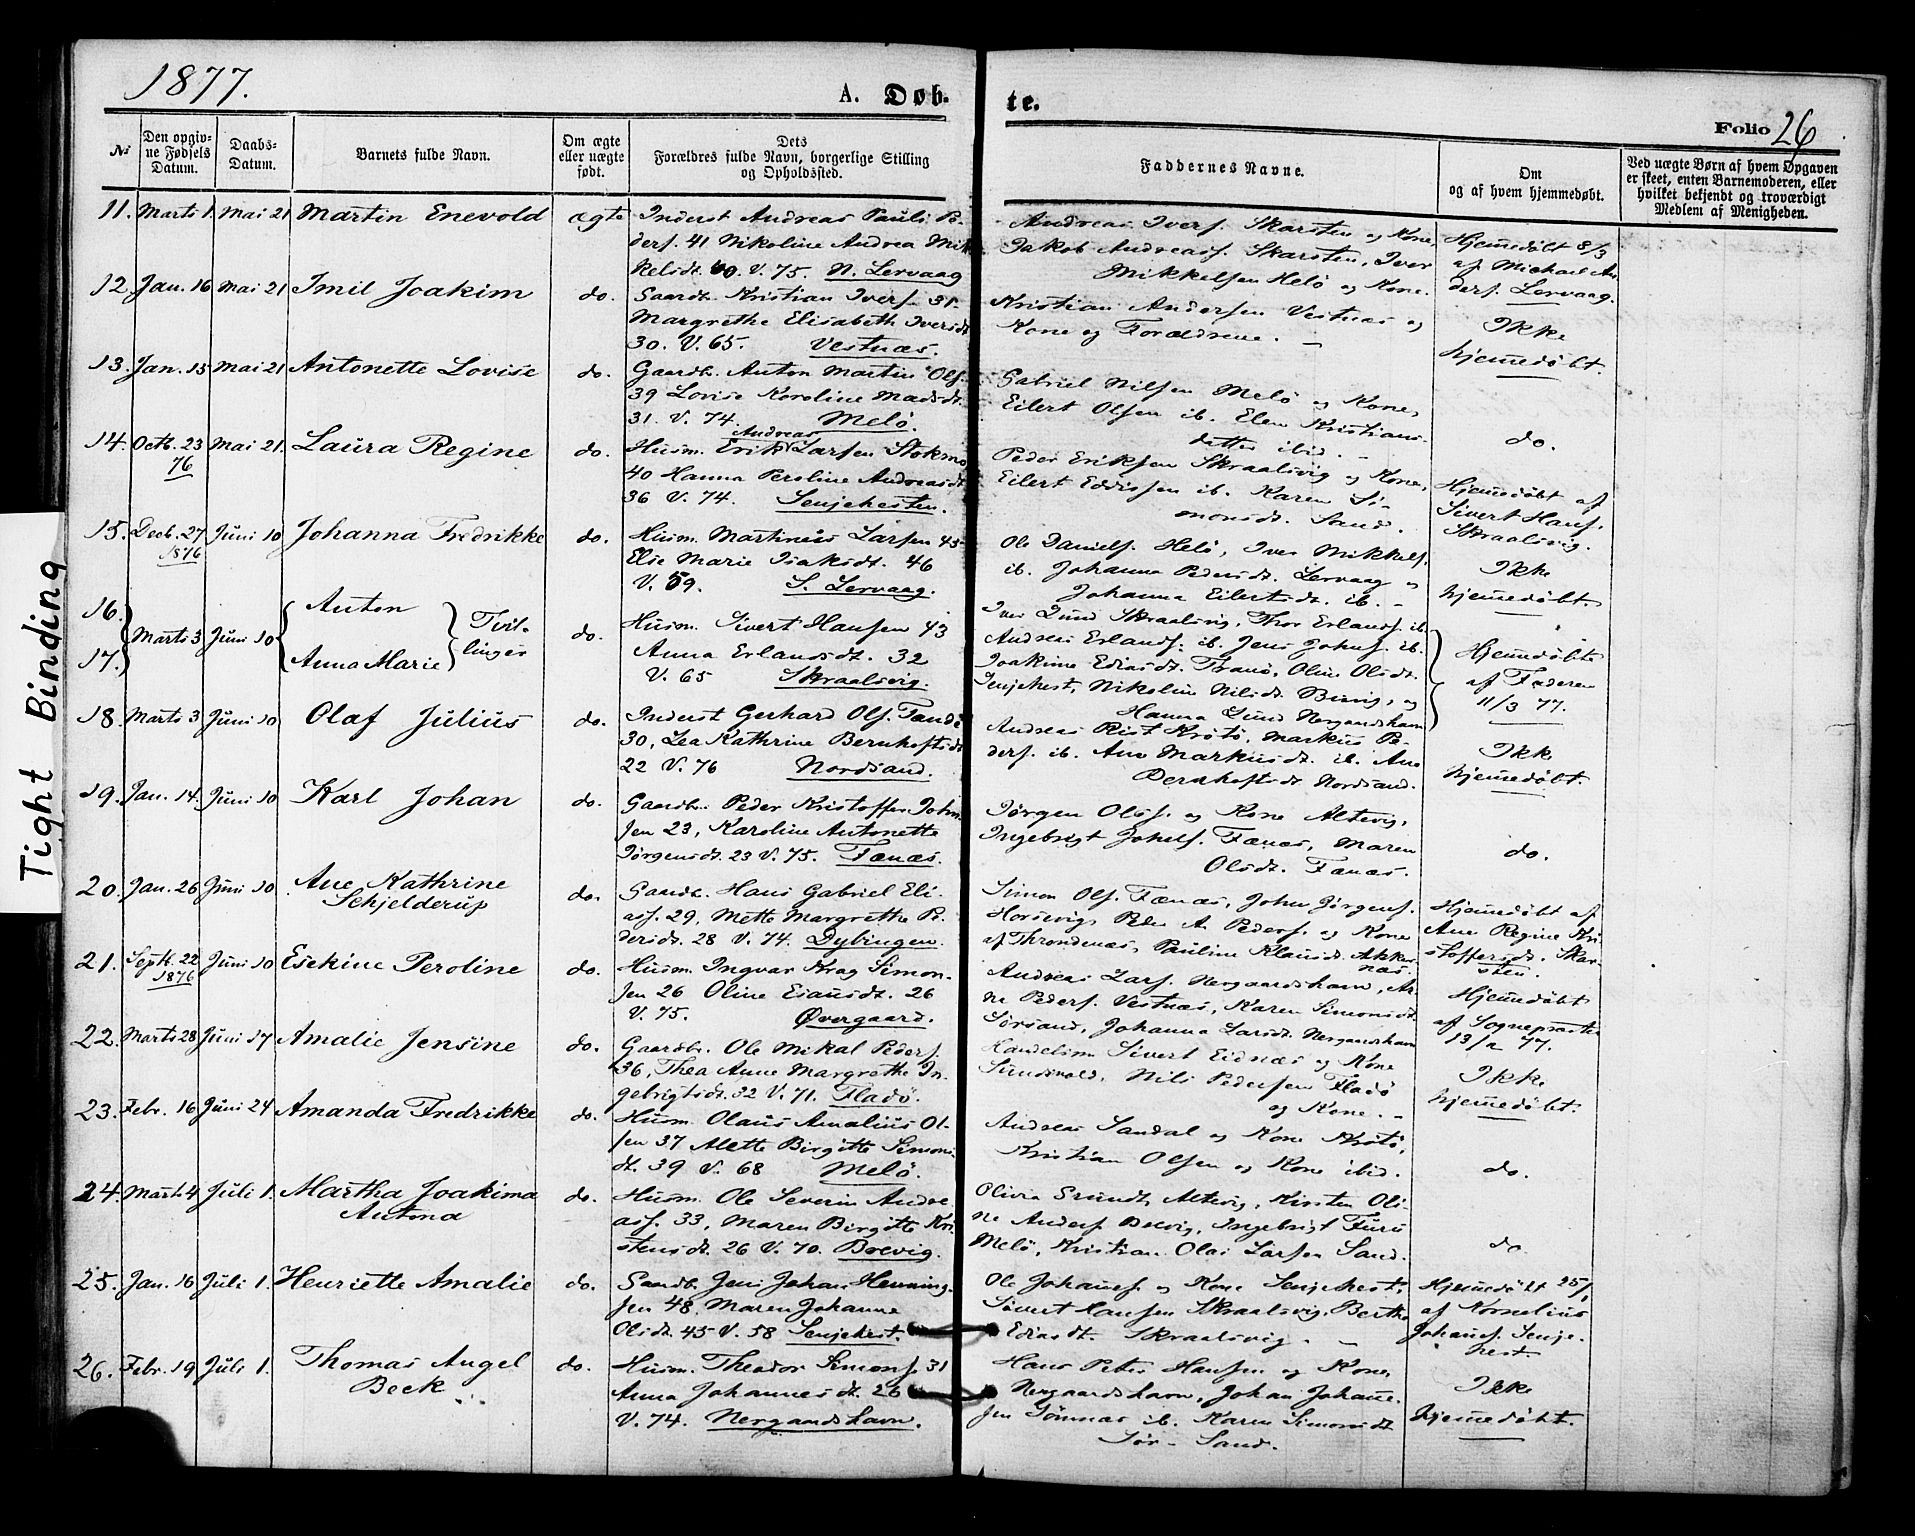 1877.
A. Døb-
te.
Folio 26
№
Den opgiv-
ne Fødsels
Datum.
Daabs-
Datum.
Barnets fulde Navn.
Om ægte
eller uægte
født.
Dets
Forældres fulde Navn, borgerlige Stilling
og Opholdssted.
Faddernes Navne.
Om
og af hvem hjemmedøbt.
Ved uægte Børn af hvem Opgaven
er skeet, enten Barnemoderen, eller
hvilket bekjendt og troværdigt
Medlem af Menigheden.
Tight Binding
11. Marts 1. Mai 21 Martin Enevold ægte
Inderst Andreas Pauli Pe-
ders. 41 Nikoline Andrea Mik-
kelsdt. 40. V. 75. N. Lervaag
Andreas Ivers. Skarsten og Kone,
Jakob Andreass. Skarsten, Iver
Mikkelsen Helø og Kone.
Hjemmedøbt 8/3
af Michael An-
ders. Lervaag.
12. Jan. 16 Mai 21 Imil Joakim do.
Gaardb. Kristian Ivers. 31.
Margrethe Elisabeth Iversdt
30. V. 65. Vestnæs.
Kristian Andersen Vestnæs og
Kone og Forældrene. —
Ikke
hjemmedøbt.
13. Jan. 15 Mai 21 Antonette Lovise do.
Gaardb. Anton Martin Ols.
39 Lovise Karoline Madsdt.
31. V. 74. Melø.
Gabriel Nilsen Melø og Kone,
Eilert Olsen ib. Elen Kristians-
datter ibid. —
do.
14. Octb. 23 Mai 21. Laura Regine do.
76
Andreas
Husm. Erik Larsen Stokmo
40 Hanna Peroline Andreasdt
36 V. 74. Senjehesten.
Peder Eriksen Skraalsvig og Kone,
Eilert Eddissen ib. Karen Si-
monsdt. Sand.
Hjemmedøbt af
Sivert Hans.
Skraalsvig.
15. Decb. 27 Juni 10 Johanna Fredrikke do.
1876
Husm. Martinus Larsen 45
Else Marie Isaksdt. 46
V. 59. S. Lervaag.
Ole Daniels. Helø, Iver Mikkels.
ib. Johanna Pedersdt. Lervaag og
Johanna Eilertsdt. ib. —
Ikke
hjemmedøbt.
16.
17.
Marts 3 Juni 10
Anton
Anna Marie
Tvil-
linger
do.
Husm. Sivert Hansen 43
Anna Erlandsdt. 32
V. 65 Skraalsvig.
Iver Lund Skraalsvig, Thor Erlands. ib.
Andreas Erlands. ib. Jens Johns. ib.
Joakime Ediasdt. Tranø, Oline Olsdt.
Senjehest, Nikoline Nilsdt. og
Hanna Lund Nergaardshavn
Hjemmedøbte
af Faderen
11/3 77.
18. Marts 3 Juni 10 Olaf Julius do.
Inderst Gerhard Ols.
30, Lea Kathrine Bernhoftsdt
22 V. 76 Nordsand.
Andreas Rist Krøtø, Markus Pe-
ders. ib. Ane Markusdt. ib. Ane
Bernhoftsdt Nordsand.
Ikke
hjemmedøbt.
19. Jan. 14. Juni 10 Karl Johan do.
Gaardb. Peder Kristoffer John-
sen 23, Karoline Antonette
Jørgensdt. 23 V. 75. Fænæs.
Jørgen Ols. og Kone Altevig,
Ingebrigt Jakels. Fænæs, Maren
Olsdt. Fænæs.
do.
20. Jan. 26 Juni 10 Ane Kathrine
Schjelderup do.
Gaardb. Hans Gabriel Eli-
ass. 29, Mette Margrethe Pe-
dersdt. 28 V. 74. Dybingen.
Simon Ols. Fænæs, John Jørgens.
Horsevig, Peder A. Peders. og Kone
af Throndenæs, Pauline Klausdt. Akker-
næs
Hjemmedøbt af
Ane Regine Kri-
stoffersdt. Skar-
sten.
21. Septb. 22 Juni 10 Esekine Peroline do.
1876
Husm. Ingvar Krag Simon-
sen 26 Oline Esausdt. 26
V. 75. Øvergaard.
Andreas Lars. Nergaardshavn, Ar-
ne Peders. Vestnæs, Karen Simonsdt.
Sørsand, Johanna Larsdt. Nergaardshavn
Hjemmedøbt
af Sognepræsten
13/2 77.
22. Marts 28 Juni 17 Amalie Jensine do.
Gaardbr. Ole Mikal Peders.
36, Thea Anne Margrethe In-
gebrigtsdt. 32 V. 71. Fladø.
Handelsm. Sivert Eidnæs og Kone
Sundsvold, Nils Pedersen Fladø
og Kone. —
Ikke
hjemmedøbt.
23. Febr. 16 Juni 24 Amanda Fredrikke do.
Husm. Olaus Amalius Ol-
sen 37 Alette Birgitte Simons-
dt. 39 V. 68 Melø
Andreas Sandal og Kone Krøtø,
Kristian Olsen og Kone ibid.
do.
24. Marts 4 Juli 1. Martha Joakima
Antona do.
Husm. Ole Severin Andre-
ass. 33, Maren Birgitte Kri-
stensdt. 26 V. 70. Brevig.
Olivia Grundt, Altevig, Kirsten Oli-
ne Anders. Brevig, Ingebrigt Furu
Melø, Kristian Olai Larsen Sand.
do
25. Jan. 16 Juli 1. Henriette Amalie do.
Gaardb. Jens Johan Henning-
sen 48, Maren Johanne
Olsdt. 45 V. 58 Senjehest.
Ole Johannes. og Kone Senjehest,
Sivert Hansen Skraalsvig, Berthe
Ediasdt. Skraalsvig. —
Hjemmedøbt 25/1
af Kornelius
Johannes. Senje-
hest.
26. Febr. 19 Juli 1. Thomas Angel
Beck do.
Husm. Theodor Simons. 31
Anna Johannesdt. 26
V. 74. Nergaardshavn.
Hans Peter Hansen og Kone,
Nergaardshavn, Johan Johanne-
sen Sømnæs ib. Karen Simonsdt
Sør-Sand.
Ikke
hjemmedøbt.